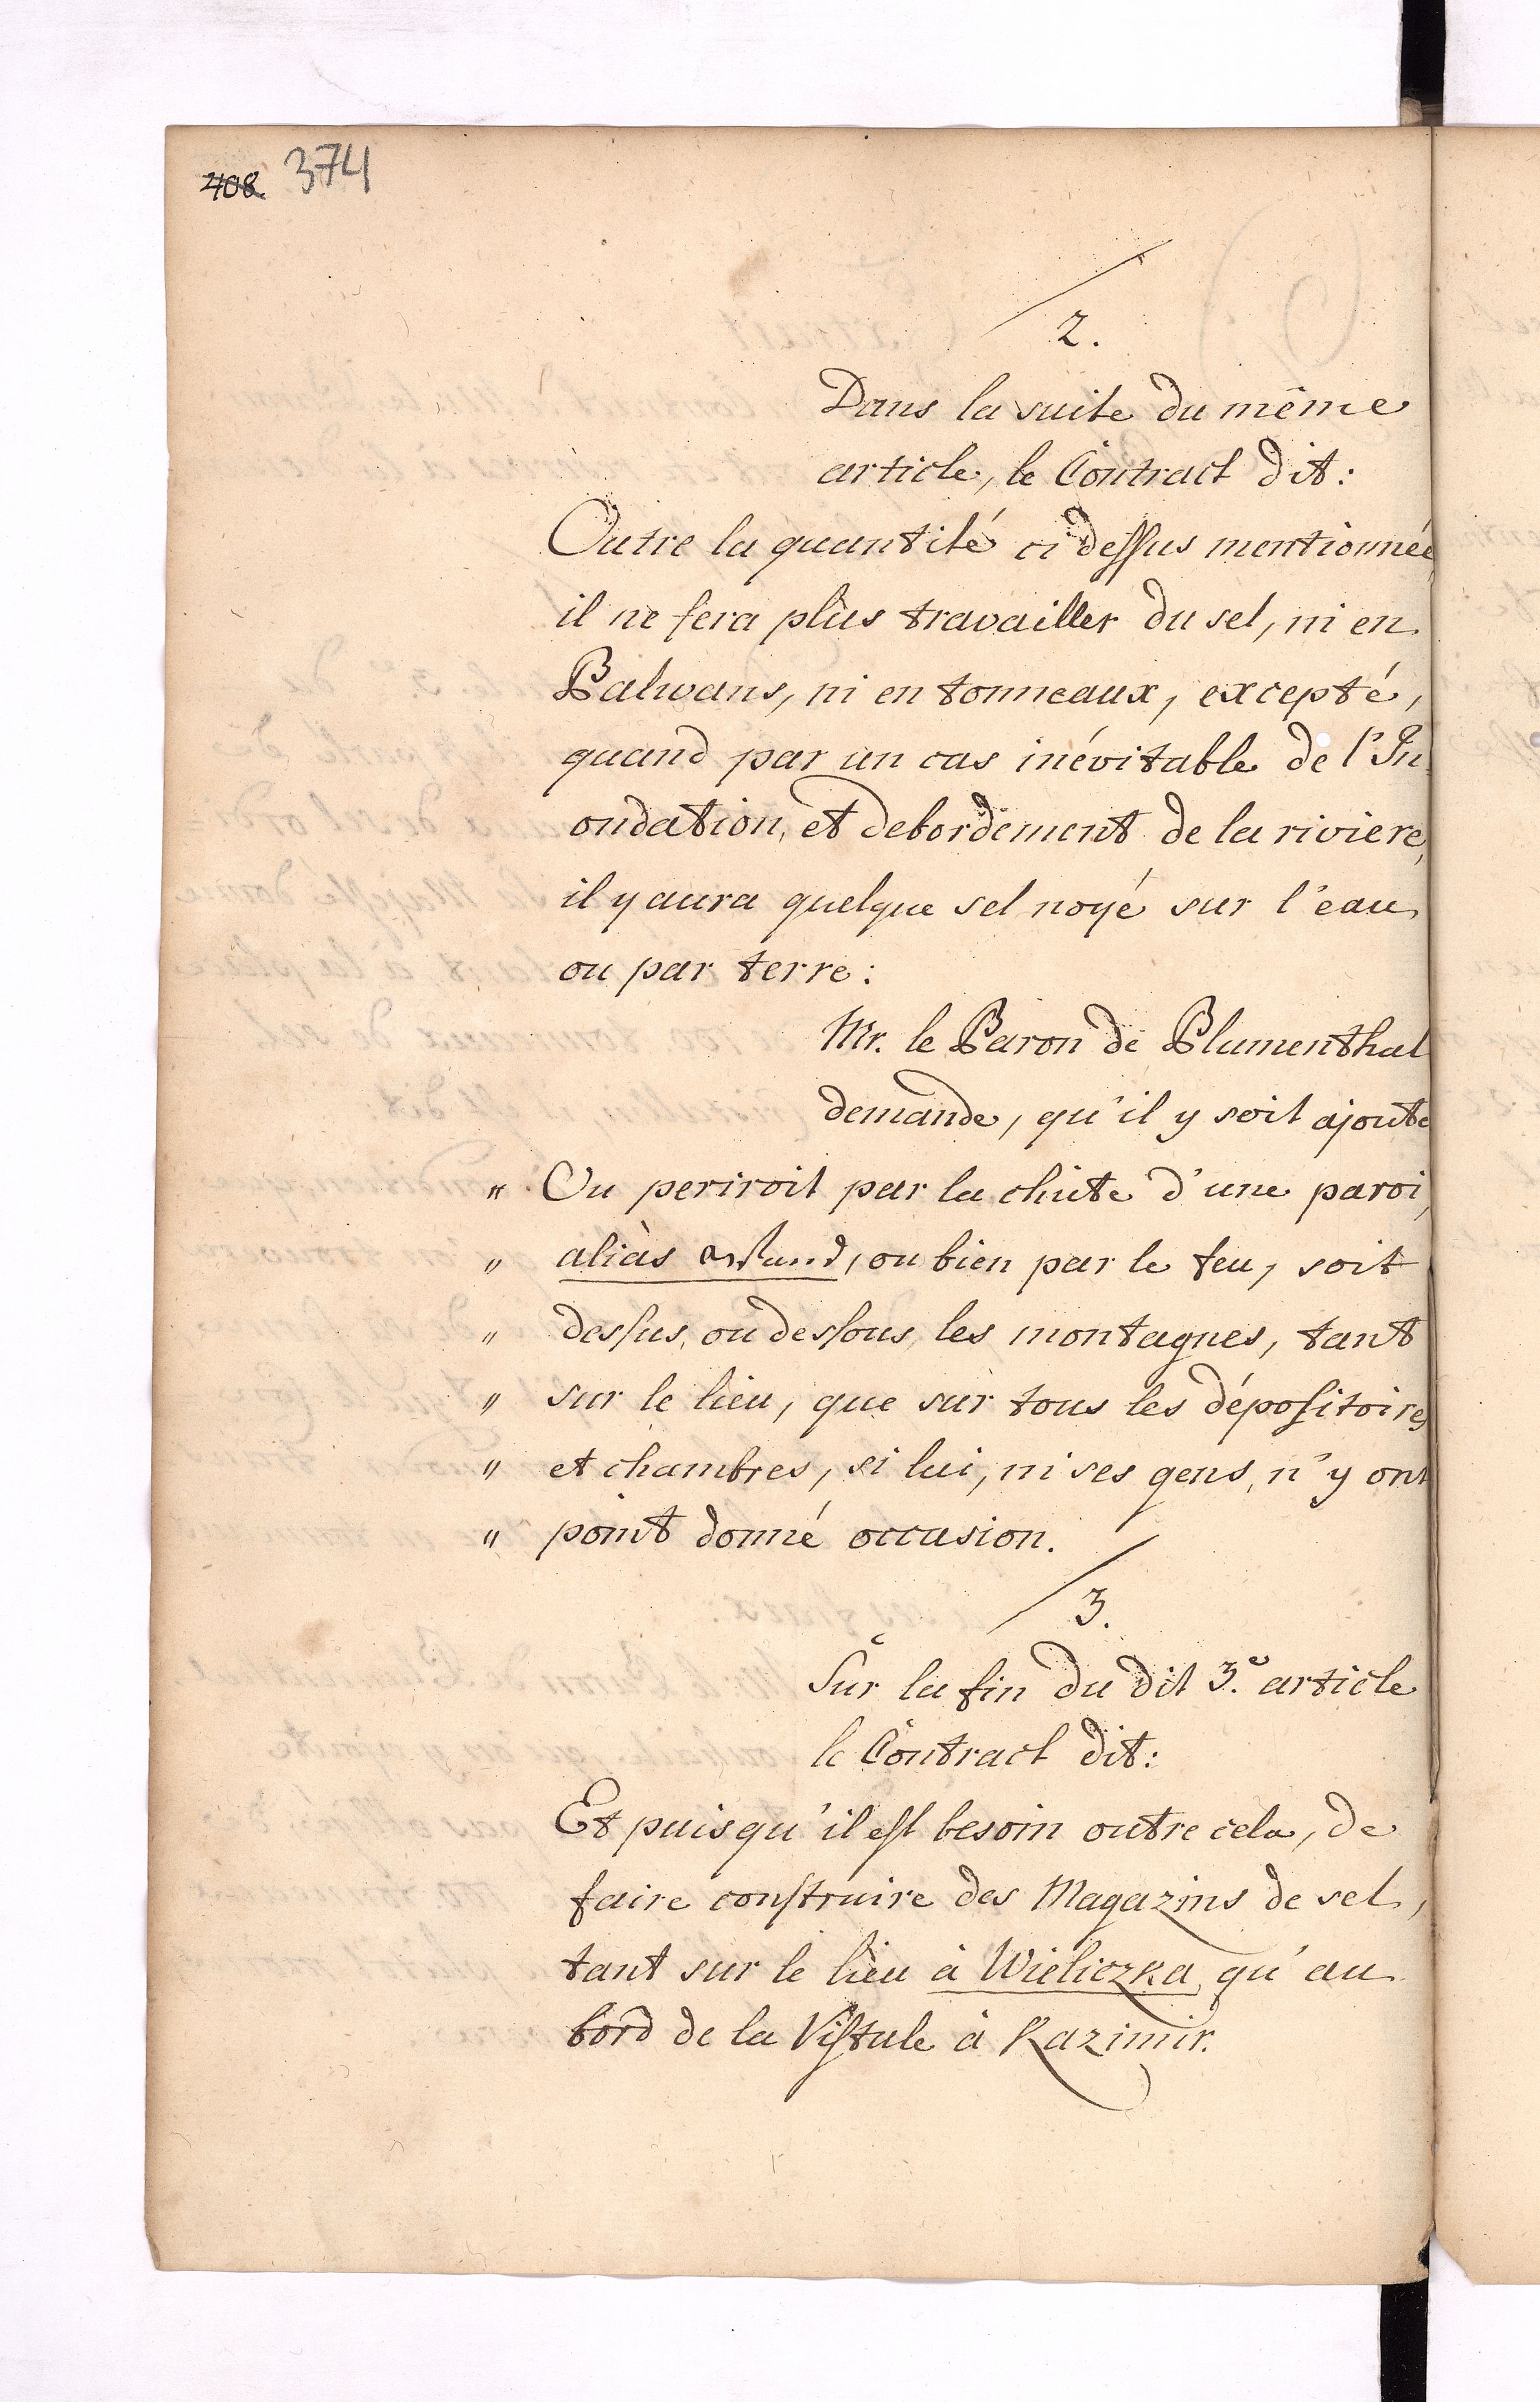 408. 374
2.
Dans la suite du même
article, le Contract dit:
Outre la quantité ci dessus mentionnée
il ne fera plus travailler du sel, ni en
Balwans, ni en tonneaux, excepté,
quand par un cas inévitable de l'In-
ondation, et debordement de la riviere,
il y aura quelque sel noyé sur l'eau
ou par terre:
Mr. le Baron de Blumenthal
demande, qu'il y soit ajouté
" Ou periroit par la chûte d'une paroi,
" aliàs Wand, ou bien par le feu, soit
" dessus, ou dessous les montagnes, tant
" sur le lieu, que sur tous les dépositoires
" et chambres, si lui, ni ses gens, n'y ont
" point donné occasion.
3.
Sur la fin du dit 3.e article
le Contract dit:
Et puisqu'il est besoin outre cela, de
faire construire des Magazins de sel,
tant sur le lieu à Wieliczka, qu'au
bord de la Vistule à Kazimir.